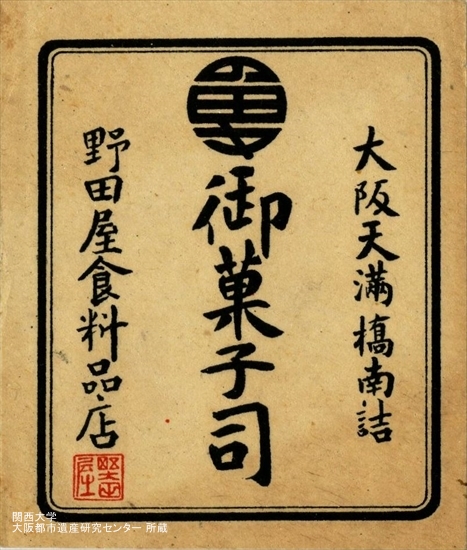 大阪天満橋南詰
御菓子司
野田屋食料品店
関西大学
大阪都市遺産研究センター 所蔵